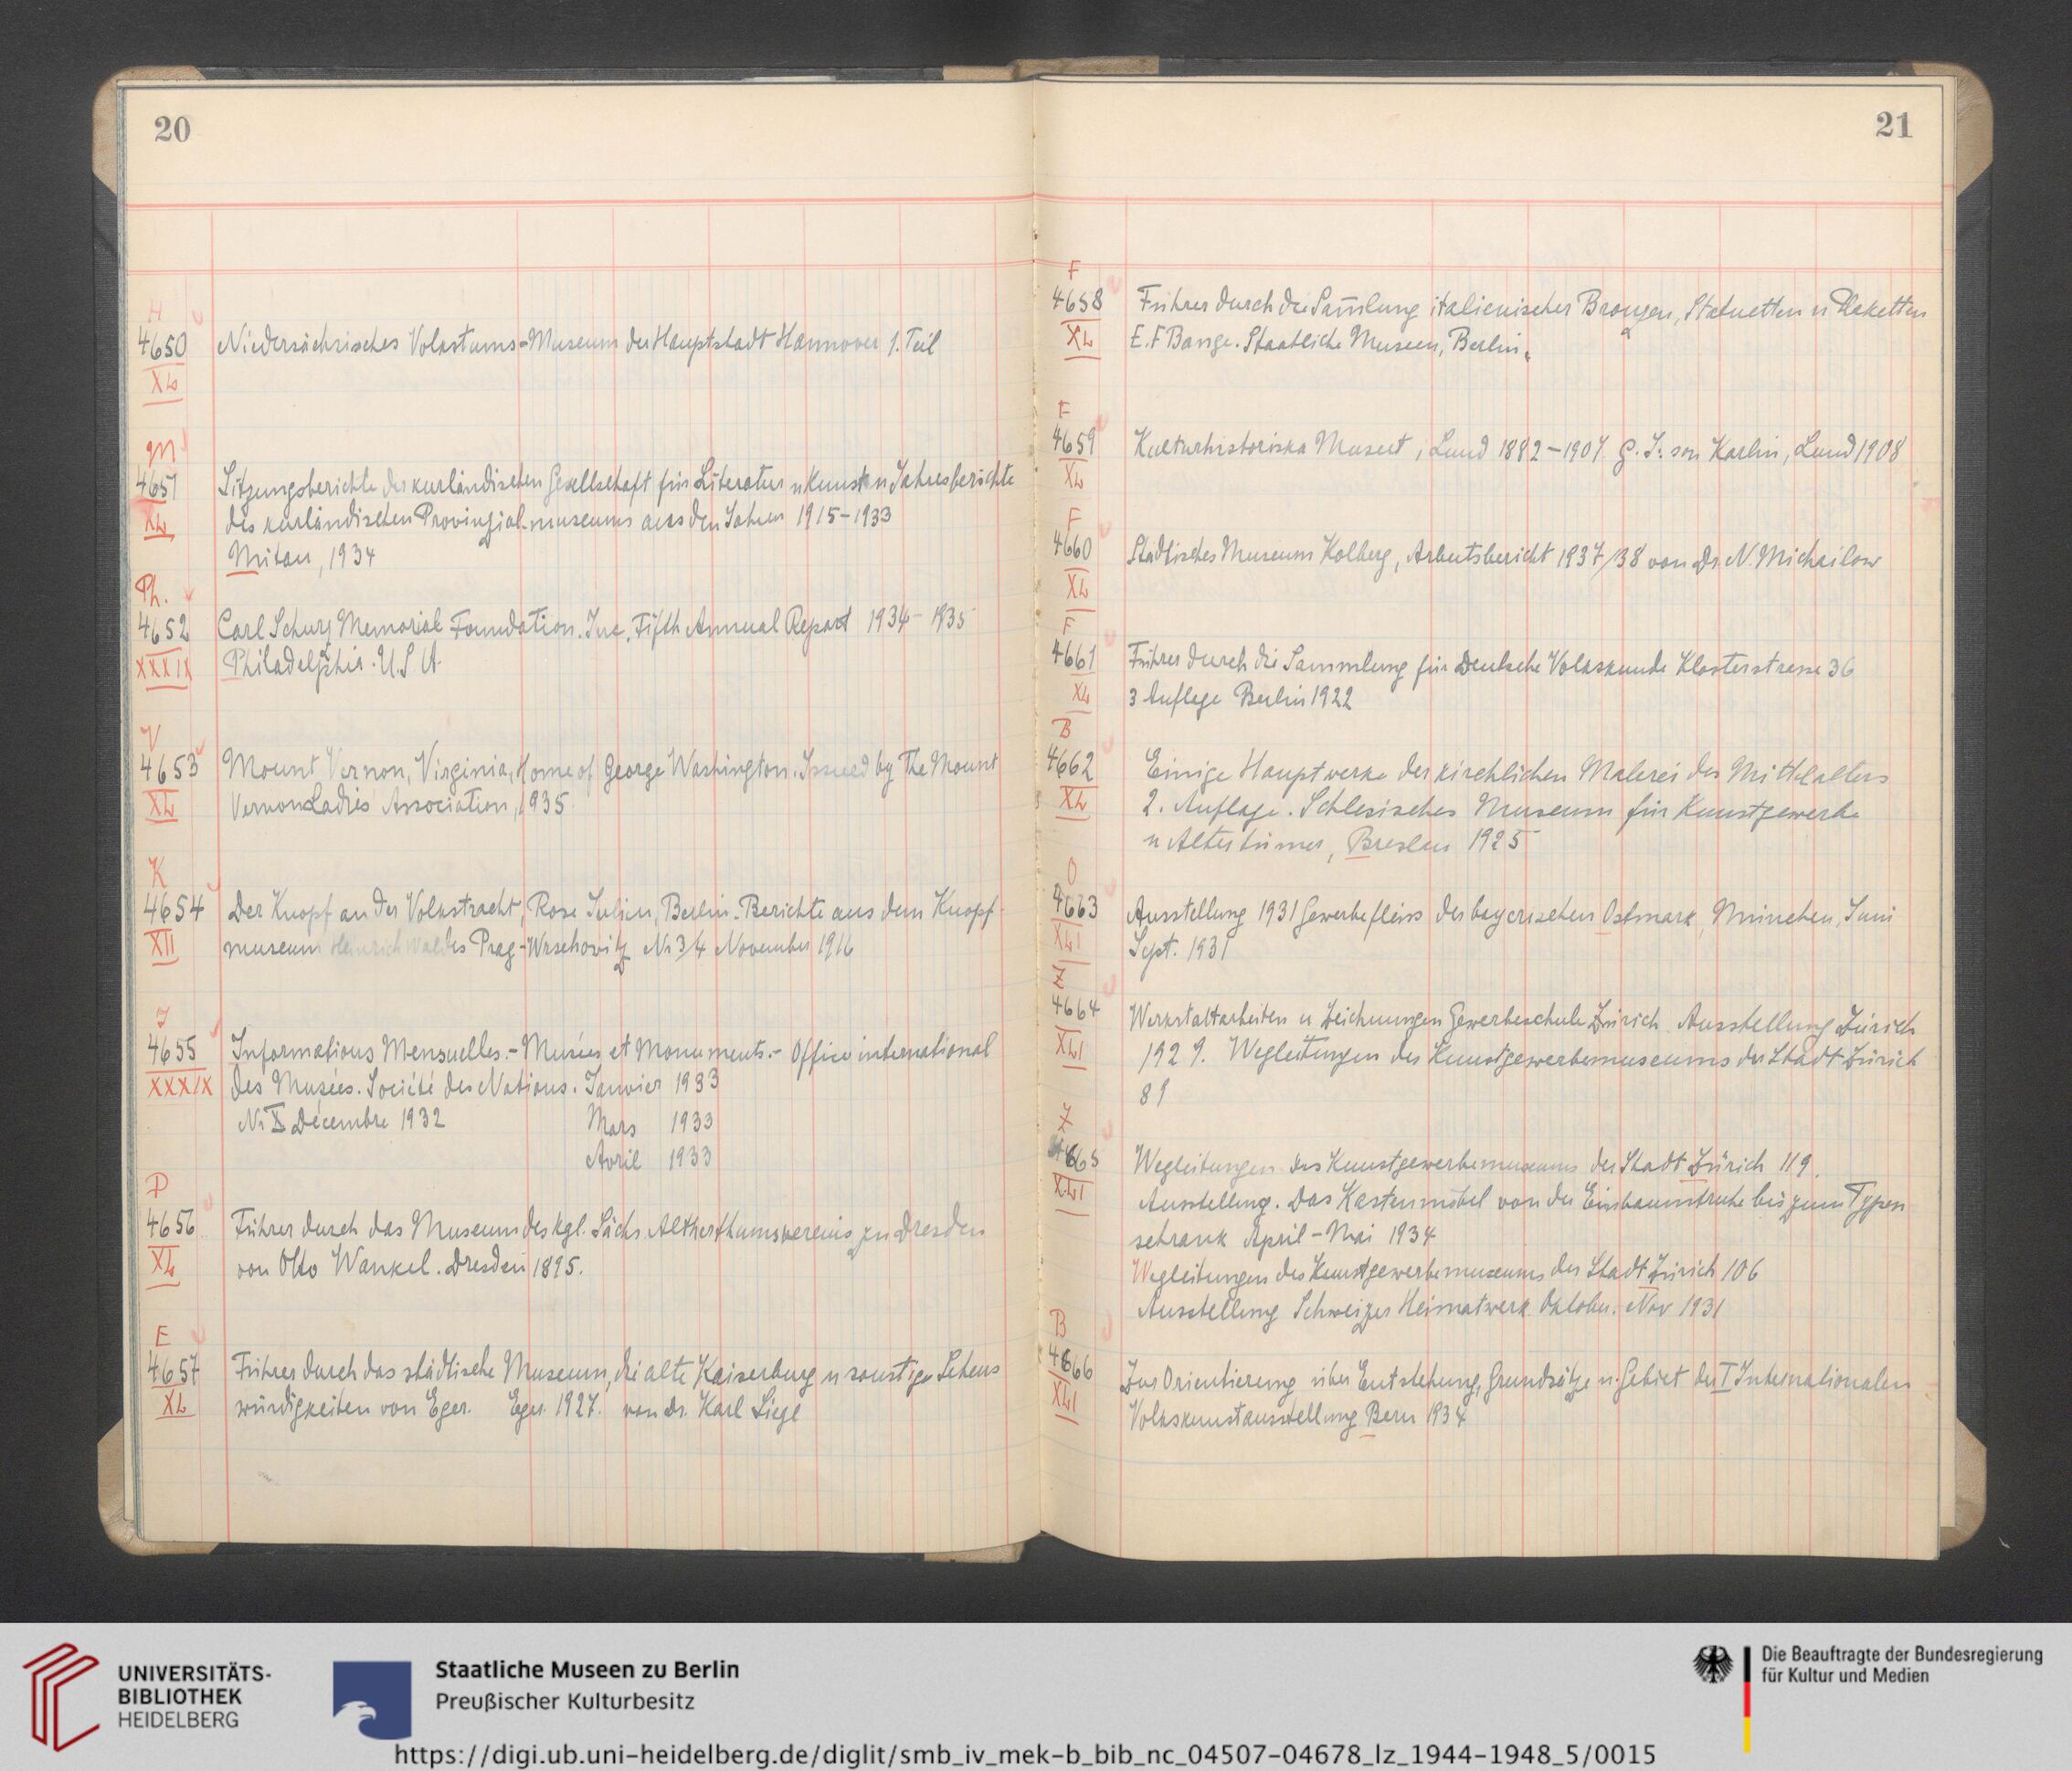 20
H
4650 Niedersächsisches Volkstums-Museum der Hauptstadt Hannover 1. Teil
XL
M
4651 Sitzungsberichte der kurländischen Gesellschaft für Literatur u Kunst u Jahresberichte
XL des kurländischen Provinzial-museums aus den Jahren 1915-1933
Mitau, 1934
Ph.
4652 Carl Schurz Memorial Foundation. Inc. Fifth Annual Report 1934-1935
XXXIX Philadelphia. U.S A.
V
4653 Mount Vernon, Virginia, Home of George Washington. Issued by The Mount
XL Vernon Ladies Association, 1935.
K
4654 Der Knopf an der Volkstracht, Rose Julien, Berlin. Berichte aus dem Knopf-
XII museum Heinrich Waldes Prag-Wrschowitz Nr 3/4 November 1916
I
4655 Informations Mensuelles.- Musées et Monuments.- Office international
XXXIX des Musées. Société des Nations. Janvier 1933
Nr X Décembre 1932 Mars 1933
Avril 1933
D
4656 Führer durch das Museum des kgl. Sächs. Altherthumsvereins zu Dresden
XL von Otto Wankel. Dresden 1895.
E
4657 Führer durch das städtische Museum, die alte Kaiserburg u sonstige Sehens
XL würdigkeiten von Eger. Eger 1927. von Dr. Karl Siegl
21
F
4658 Führer durch die Sam̄lung italienischer Bronzen, Statuetten u Plaketten
XL E.F Bange. Staatliche Museen, Berlin.
F
4659 Kulturhistoriska Museet i Lund 1882-1907. G. J:son Karlin, Lund 1908
XL
F
4660 Städtisches Museum Kolberg, Arbeitsbericht 1937/38 von Dr N. Michailow
XL
F
4661 Führer durch die Sammlung für Deutsche Volkskunde Klosterstrasse 36
XL 3 Auflage Berlin 1922
B
4662 Einige Hauptwerke der kirchlichen Malerei des Mittelalters
XL 2. Auflage. Schlesisches Museum für Kunstgewerbe
u Altertümer, Breslau 1925
O
4663 Ausstellung 1931 Gewerbefleiss der bayerischen Ostmark, München, Juni
XLI Sept. 1931
Z
4664 Werkstattarbeiten u Zeichnungen Gewerbeschule Zürich. Ausstellung Zürich
XLI 1929. Wegleitungen des Kunstgewerbemuseums der Stadt Zürich
89
Z
4665 Wegleitungen des Kunstgewerbemuseums der Stadt Zürich 119.
XLI Ausstellung. Das Kastenmöbel von der Einbaumtruhe bis zum Typen
schrank April-Mai 1934
Wegleitungen des Kunstgewerbemuseums der Stadt Zürich 106
Ausstellung Schweizer Heimatwerk Oktober. Nov 1931
B
4666 Zur Orientierung über Entstehung, Grundsätze u. Gebiet der I Internationalen
XLI Volkskunstausstellung Bern 1934
UNIVERSITÄTS-
BIBLIOTHEK
HEIDELBERG
Staatliche Museen zu Berlin
Preußischer Kulturbesitz
Die Beauftragte der Bundesregierung
für Kultur und Medien
https://digi.ub.uni-heidelberg.de/diglit/smb_iv_mek-b_bib_nc_04507-04678_lz_1944-1948_5/0015